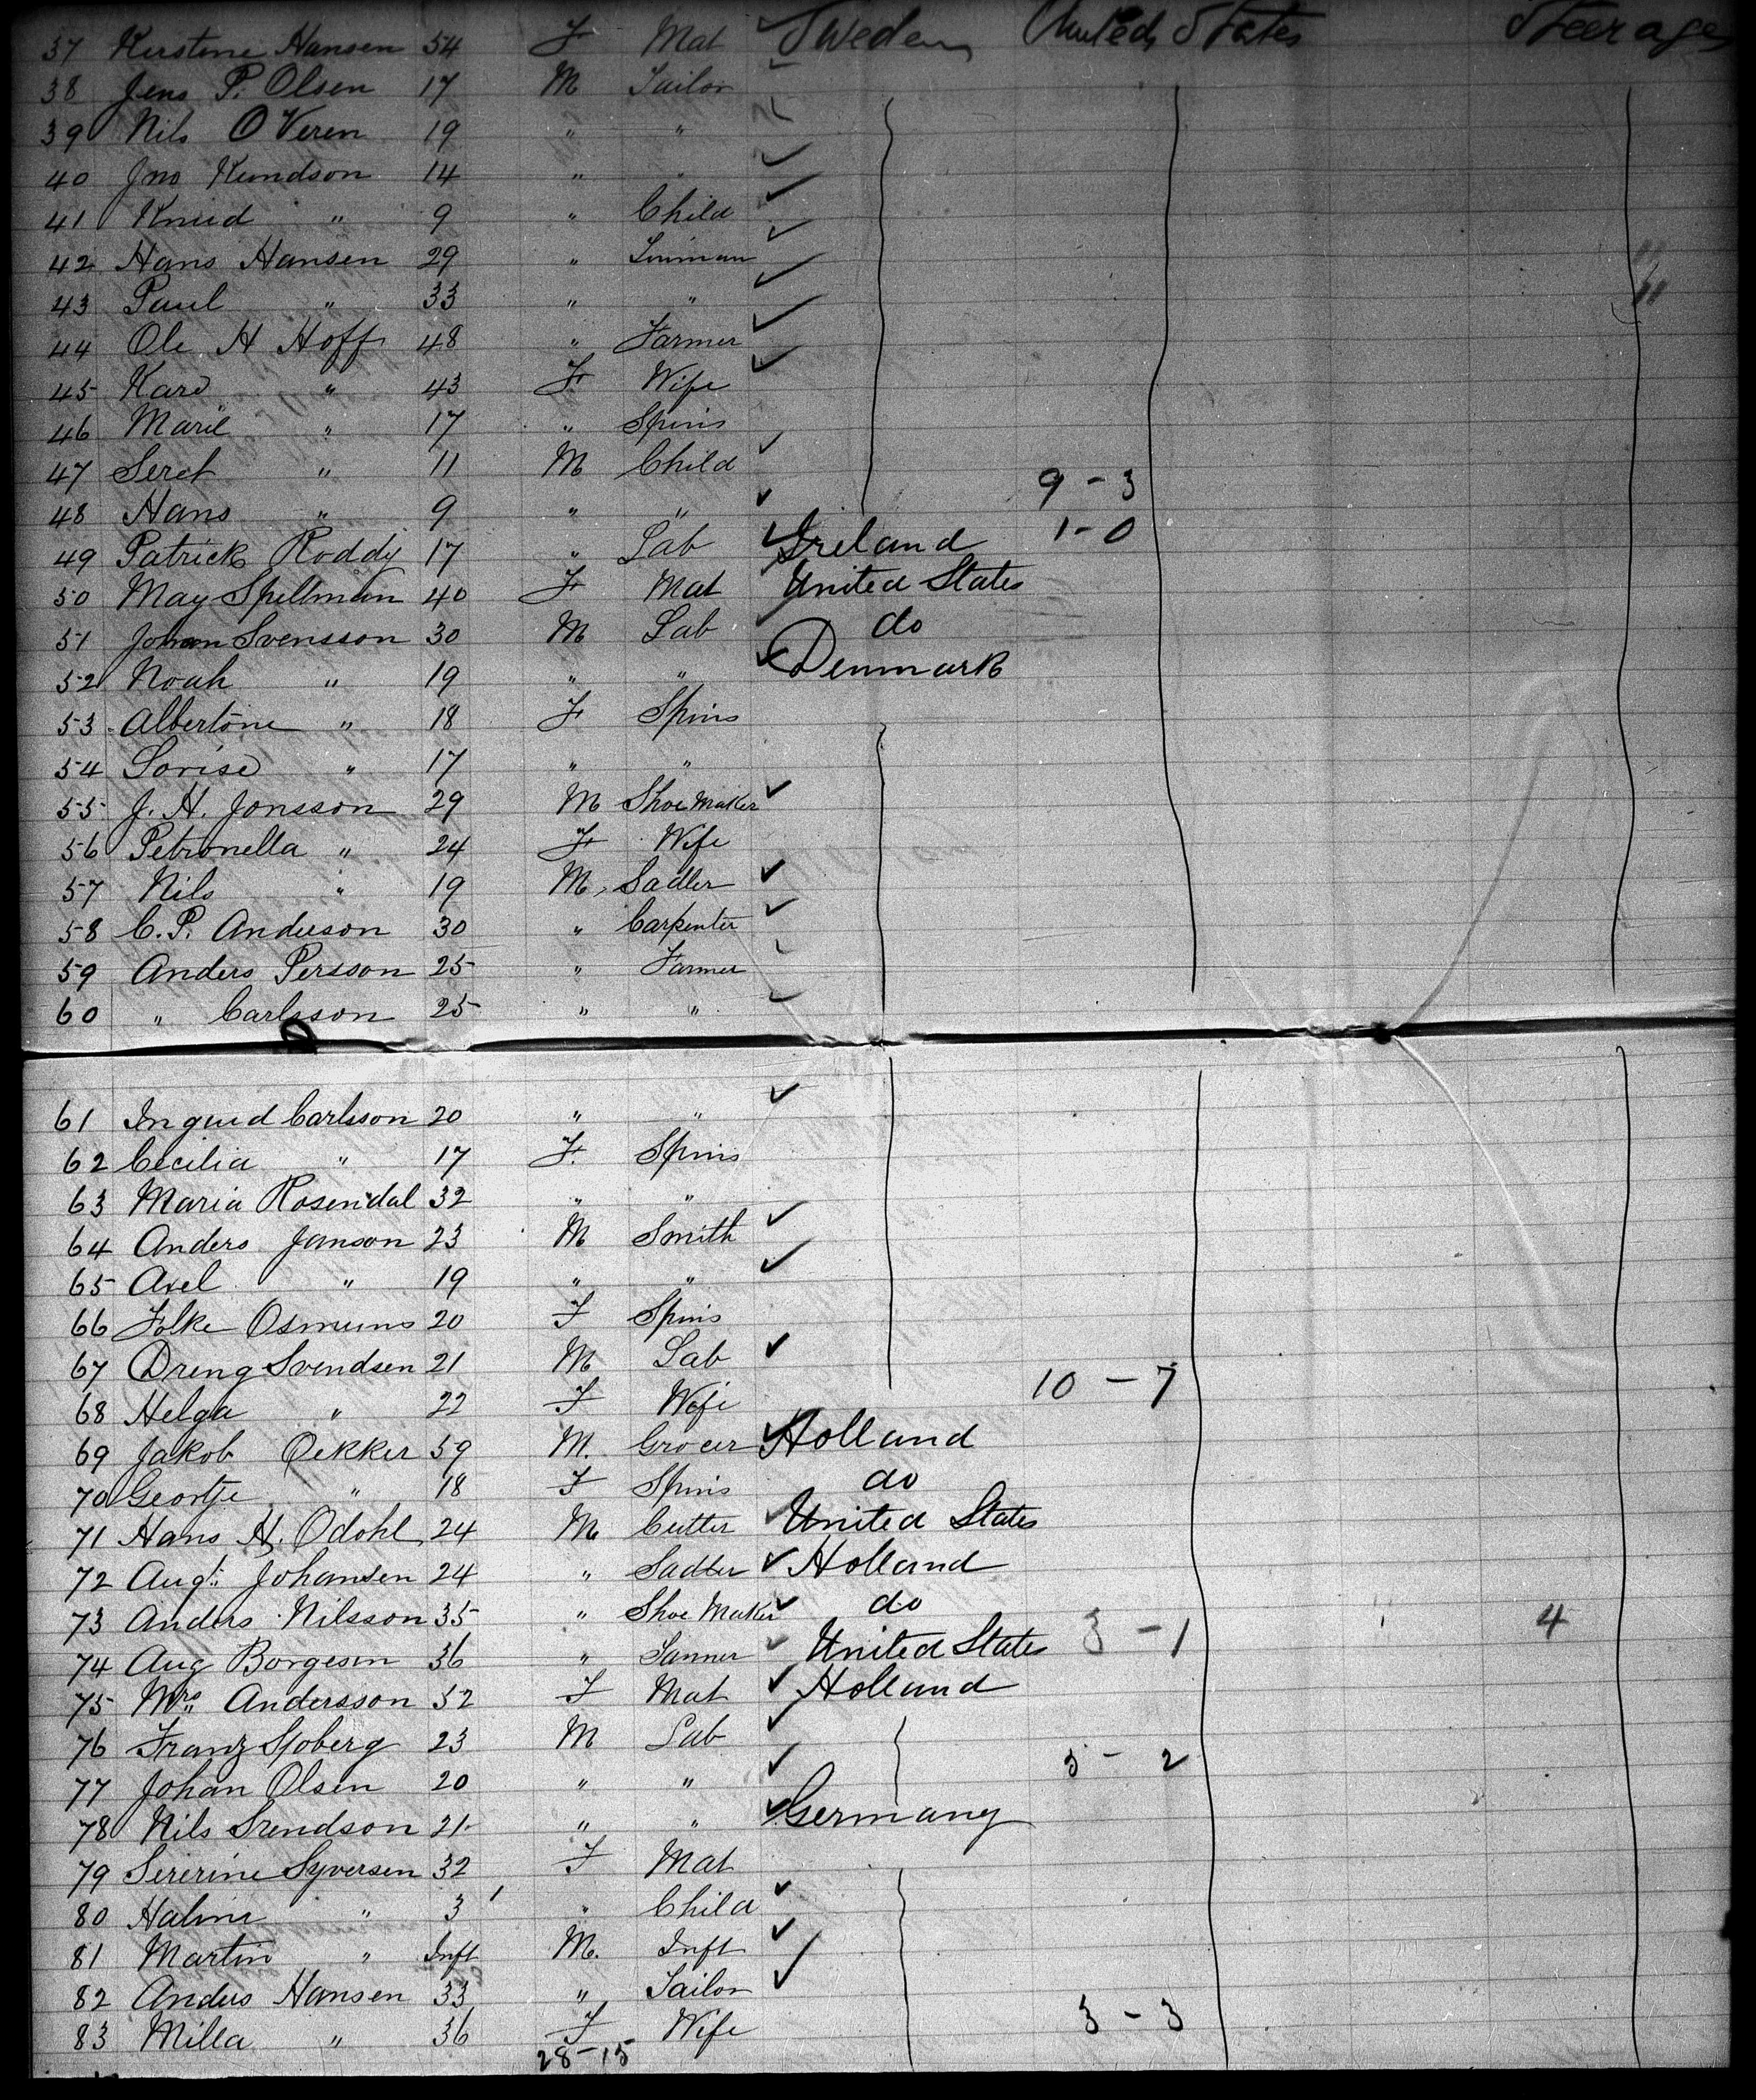 37 Kirstine Hansen 54 F Mat Sweden United States Steerage
38 Jens P. Olsen 17 M Tailor
39 Nils O Veren 19 " "
40 Jno Knudson 14 " "
41 Knud " 9 " Child
42 Hans Hansen 29 "
43 Paul " 33 " "
44 Ole H Hoff 48 " Farmer
45 Kari " 43 F Wife
46 Marie " 17 " Spins
47 Seret " 11 M Child
9 - 3
48 Hans " 9 " "
49 Patrick Roddy 17 " Lab Ireland 1 - 0
50 May Spellman 40 F Mat United States
51 Johan Svensson 30 M Lab do
52 Noah " 19 " " Denmark
53 Albertine " 18 F Spins
54 Lovise " 17 " "
55 J. H. Jonsson 29 M Shoe Maker
56 Petronella " 24 F Wife
57 Nils " 19 M Sadler
58 C. P. Anderson 30 " Carpenter
59 Anders Persson 25 " Farmer
60 " Carlsson 25 " "
61 Ingrid Carlsson 20 " "
62 Cecilia " 17 F. Spins
63 Maria Rosendal 32 " "
64 Anders Janson 23 M Smith
65 Axel " 19 " "
66 Folke Osmuns 20 F Spins
67 Dreng Svendsen 21 M Lab
10 - 7
68 Helga " 22 F Wife
69 Jakob Dekker 59 M. Grocer Holland
70 Geertje " 18 F Spins do
71 Hans H. Odohl 24 M Cutter United States
72 Augt. Johansen 24 " Sadler Holland
73 Anders Nilsson 35 " Shoe Maker do 3 - 1 4
74 Aug Borgesen 36 " Tanner United States
75 Mrs. Andersson 52 F Mat Holland
76 Franz Sjoberg 23 M Lab
3 - 2
77 Johan Olsen 20 " "
78 Nils Svendson 21 " " Germany
79 Sererine Syversen 32 F Mat
80 Haline " 3 " Child
81 Martin " Inft M. Inft
82 Anders Hansen 33 " Tailor
83 Milla " 36 F Wife 3 - 3
28 - 15